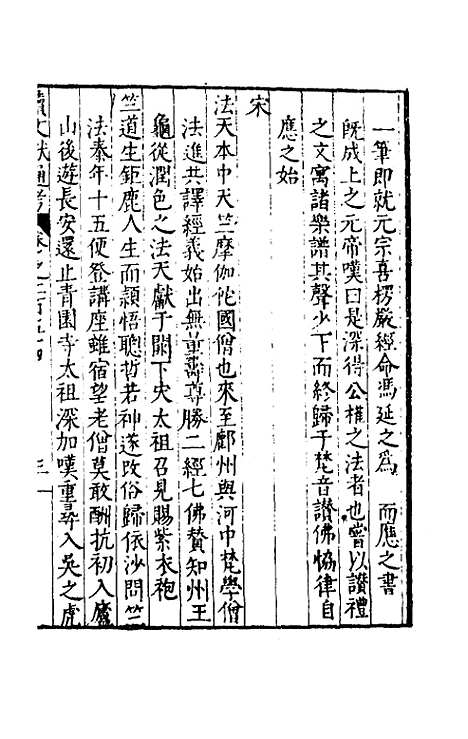 一筆即就元宗喜楞嚴經命馮延之為　而應之書
既成上之元帝嘆曰是深得公權之法者也嘗以讃禮
之文寓諸樂譜其聲少下而終歸于梵音讃佛協律自
應之始
宋
法天本中天竺摩伽陀國僧也來至鄜州與河中梵學僧
法進共譯經義始出無量壽尊勝二經七佛賛知州王
龜從潤色之法天獻于闕下宋太祖召見賜紫衣袍
竺道生鉅鹿人生而頴悟聰哲若神遂改俗歸依沙門竺
法泰年十五便登講座雖宿望老僧莫敢酬抗初入廬
山後遊長安還止青園寺太祖深加嘆重尋入吳之虎
續文獻通考 卷之二百五十四 三